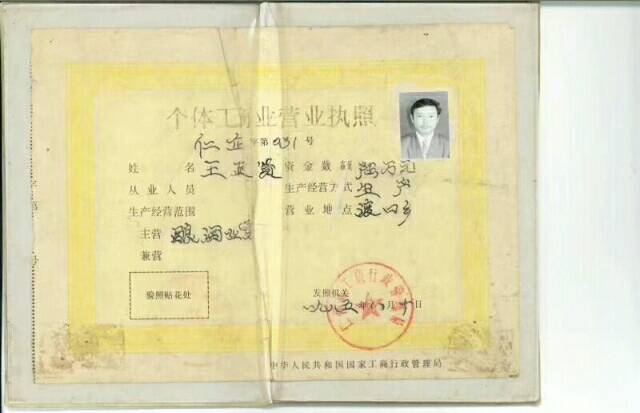 个体工商业营业执照
仁 字第 931 号
姓名 王正贤 资金数额 万元
从业人员 生产经营方式 生产
生产经营范围 营业地点 渡口乡
主营 酿酒业
兼营
验照贴花处
发照机关
一九八五年 月十日
中华人民共和国国家工商行政管理局